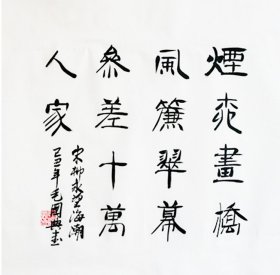 煙柳畫橋
風簾翠幕
參差十萬
人家
宋柳永望海潮
己丑年毛國典書